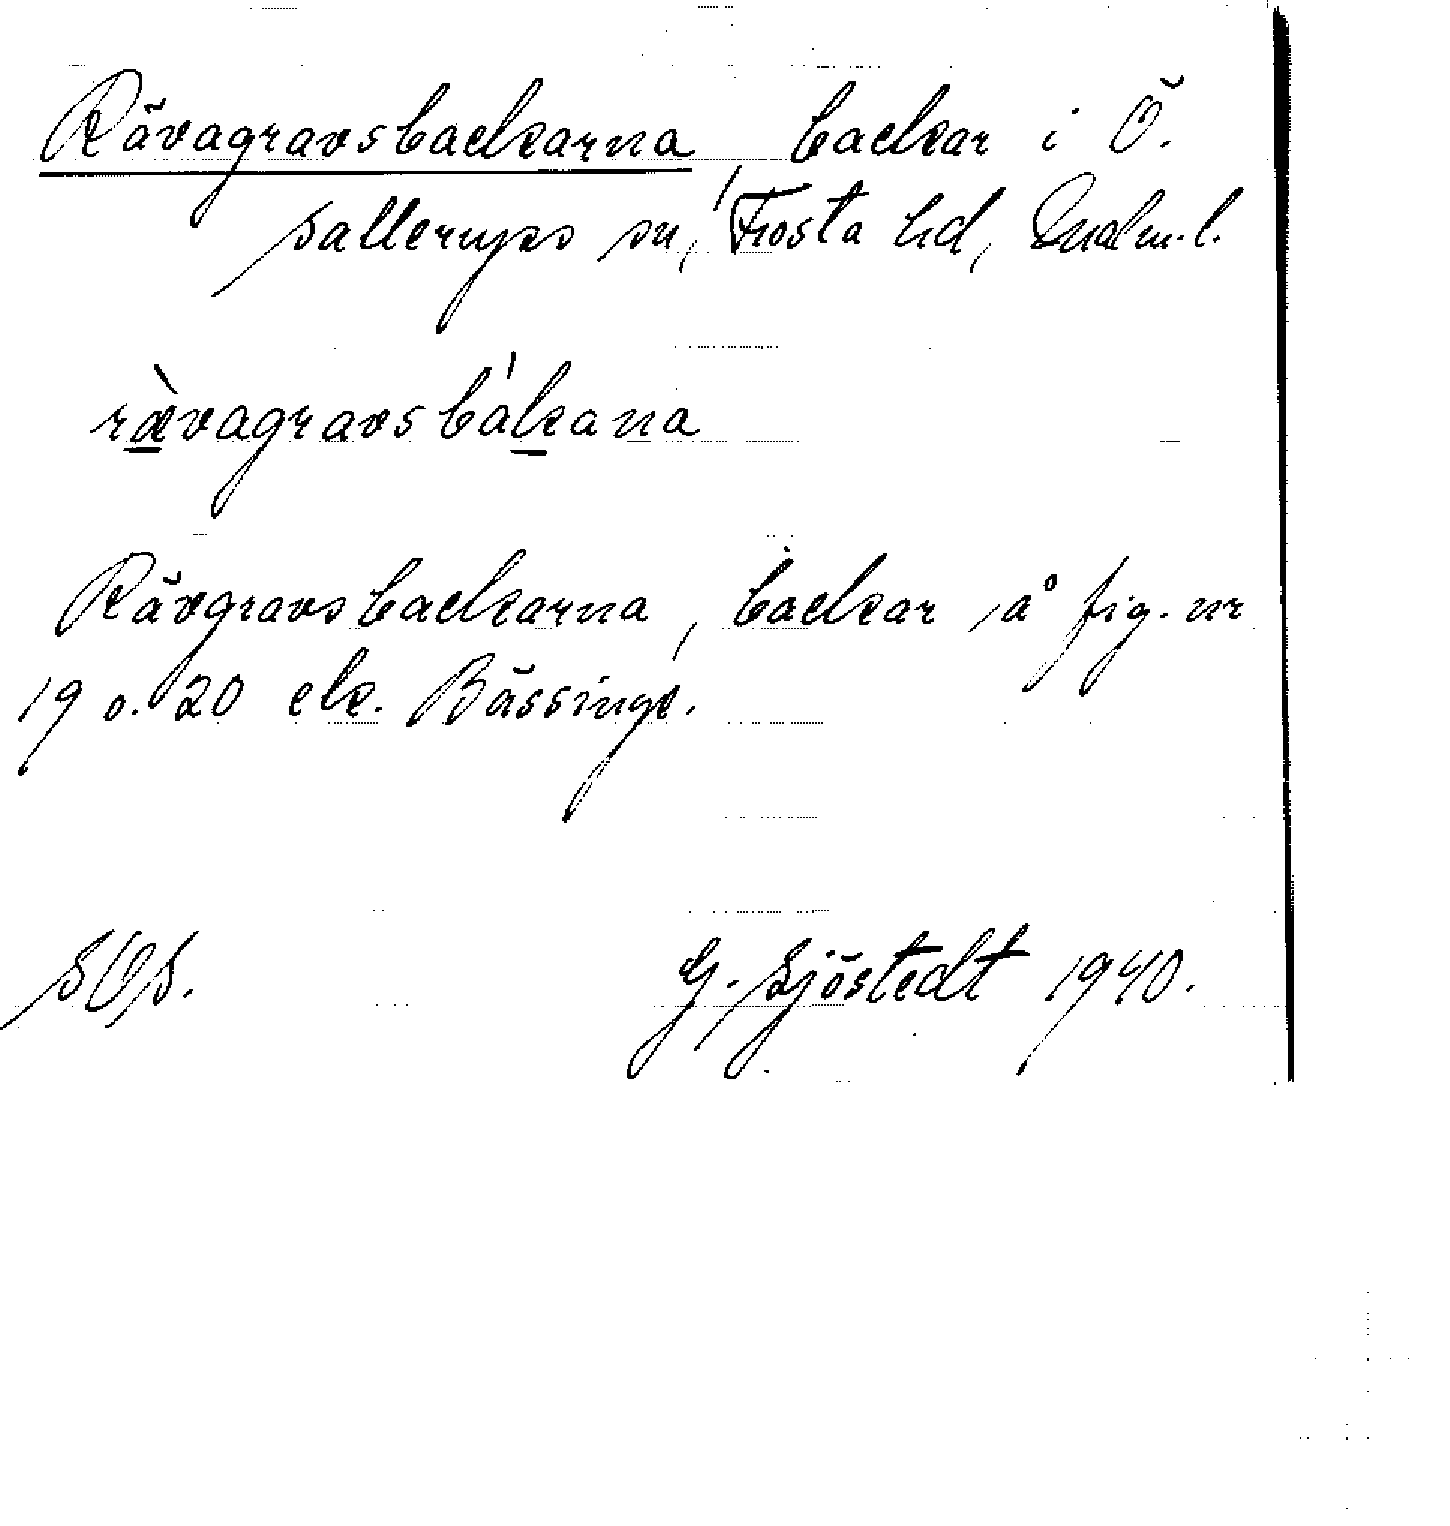 Rävagravsbackarna, backar i Ö.
Sallerups sn, Frosta hd, Malm.l.
rævagravsbakana
Rävgravsbackarna, backar på fig. nr
19 o. 20 ek. Bässinge.
SOS.
G. Sjöstedt 1940.